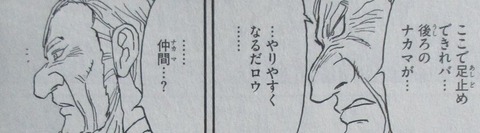 ここで足止め
できれバ…
後ろの
ナカマが…
…やりやすく
なるだロウ
……
……
仲間…?
…